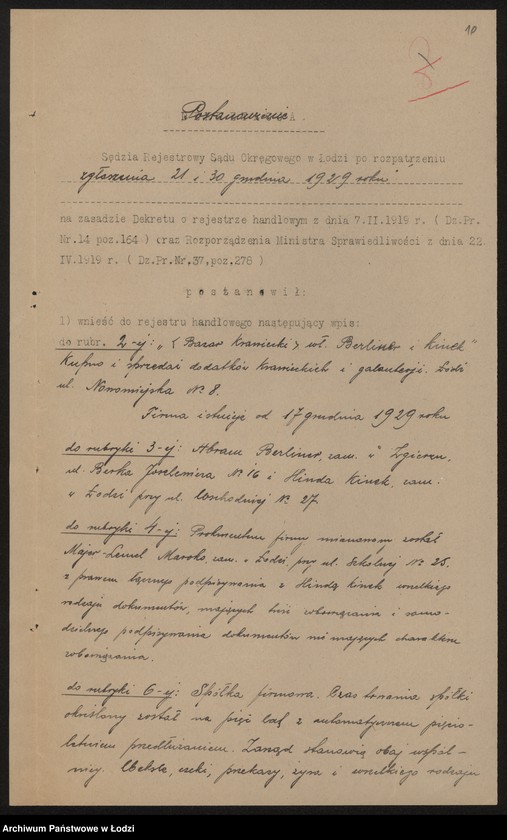 10
Postanowienie
Sędzia Rejestrowy Sądu Okręgowego w Łodzi po rozpatrzeniu
zgłoszenia 21 i 30 grudnia 1929 roku
na zasadzie Dekretu o rejestrze handlowym z dnia 7.II.1919 r. ( Dz.Pr.
Nr.14 poz.164 ) oraz Rozporządzenia Ministra Sprawiedliwości z dnia 22
IV.1919 r. ( Dz.Pr.Nr.37,poz.278 )
p o s t a n o w i ł:
1) wnieść do rejestru handlowego następujący wpis:
do rubr. 2-ej: „(Bazar Krawiecki) wł. Berliner i Kinek"
Kupno i sprzedaż dodatków krawieckich i galanterji. Łódź
ul. Nowomiejska № 8.
Firma istnieje od 17 grudnia 1929 roku
do rubryki 3-ej: Abram Berliner, zam. w Zgierzu,
ul. Berka Joselewicza № 16 i Hinda Kinek, zam.:
w Łodzi przy ul. Wschodniej № 27
do rubryki 4-ej: Prokurentem firmy mianowany został
Majer-Lemel Maroko, zam. w Łodzi, przy ul. Szkolnej № 25.
z prawem łącznego podpisywania z Hindą Kinek wszelkiego
rodzaju dokumentów, mających treść zobowiązania i samo-
dzielnego podpisywania dokumentów nie mających charakteru
zobowiązania.
do rubryki 6-ej: Spółka firmowa. Czas trwania spółki
określony został na pięć lat z automatycznem pięcio-
letniem przedłużaniem. Zarząd stanowią obaj wspól-
nicy. Weksle, czeki, przekazy, żyra i wszelkiego rodzaju
Archiwum Państwowe w Łodzi